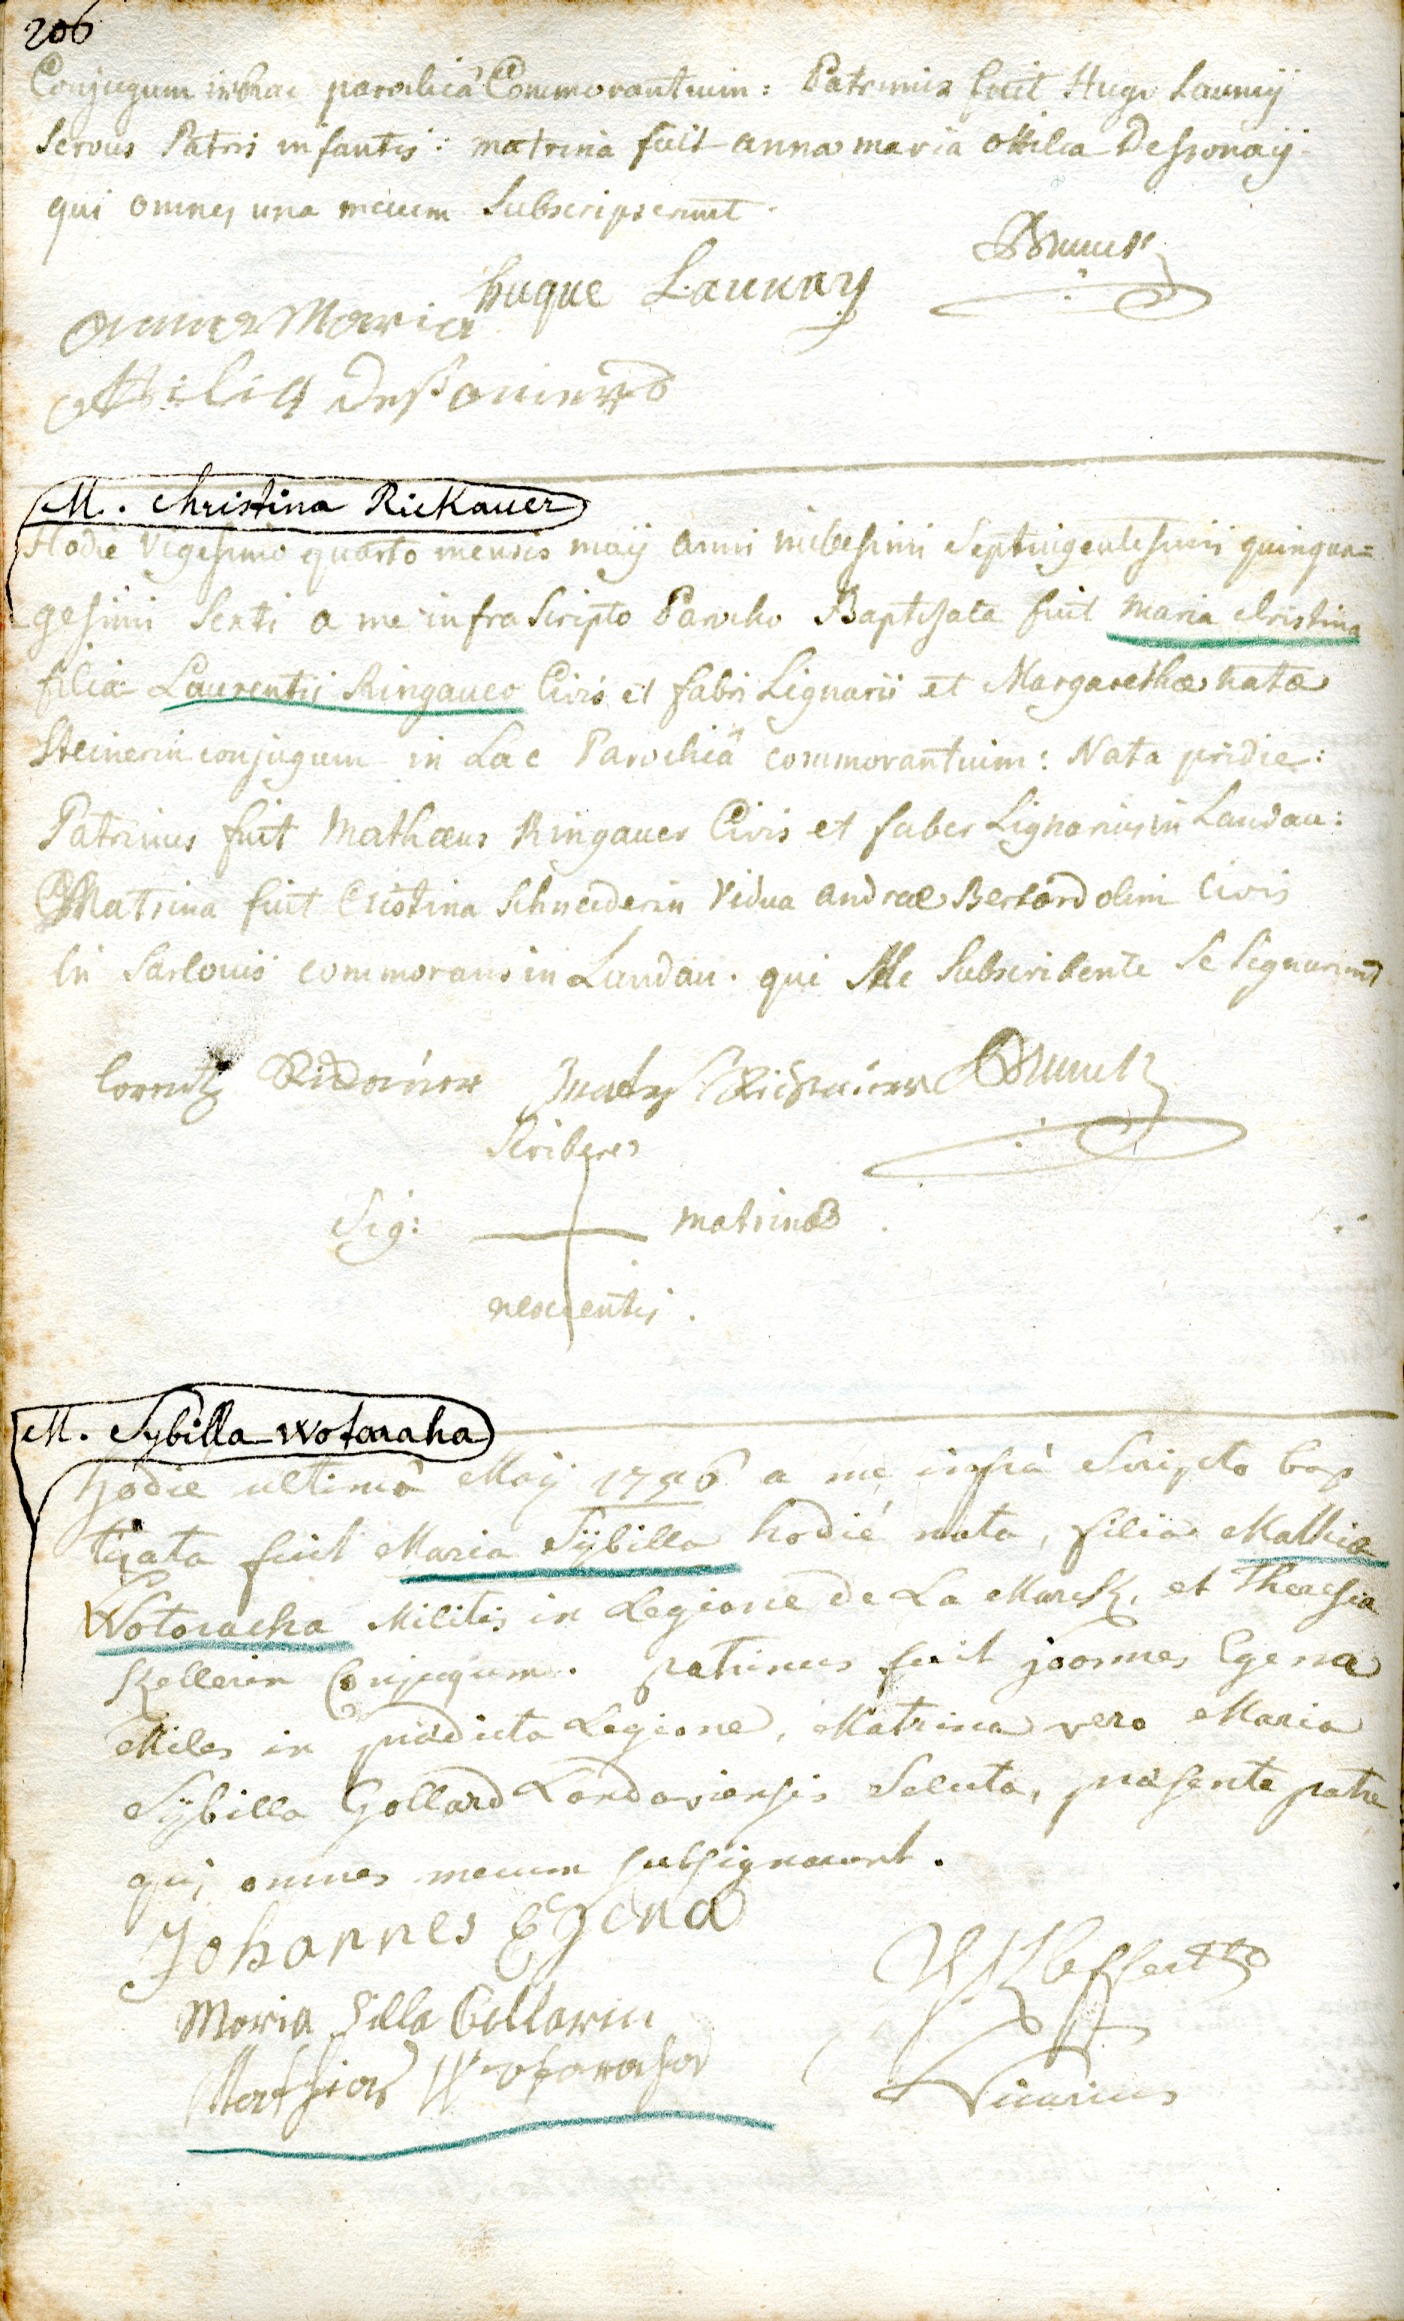 206
Conjugum in hac parochiâ Commorantium: Patrinus fuit Hugo Launay
servus Patris infantis: matrina fuit anna maria ottilia Dessonaij
qui omnes una mecum Subscripserunt.
huque Launay
Anna Maria
ottilia
M. Christina Rickauer
Hodie Vigesimo quarto mensis maij anni millesimi Septingentesimi quinqua=
gesimi Sexti a me infra Scripto Parocho Baptisata fuit Maria Christina
filia Laurentii Ringauer Civis et fabri Lignarii et Margarethæ natæ
Steinerin conjugum in hac Parochiâ commorantium: Nata pridie:
Patrinus fuit Mathæus Ringauer Civis et faber Lignarius in Landau:
Matrina fuit Cristina Schneiderin Vidua andreæ Bernard olim Civis
in Sarlouis commorans in Landau. qui Me Subscribente Se Signarunt
Lorentz
Scribere
Sig: matrinæ
nescientis.
M. Sybilla Wotoraha
hodie ultimâ Maij 1756 a me infrà Scripto bap
tizata fuit Maria Sÿbilla hodié nata, filia Mathiæ
Wotoracha Militis in Legione de La Marck, et Theresia
Kellerin Conjugum. patrinus fuit joannes Egena
Miles in prædicta Legione, Matrina vero Maria
Sÿbilla Gollard Landaviensis Soluta, præsente patre
qui omnes mecum subsignarunt.
Johannes Egena
Maria Silla Gollarin
Mathias Wotoraha
Vicarius